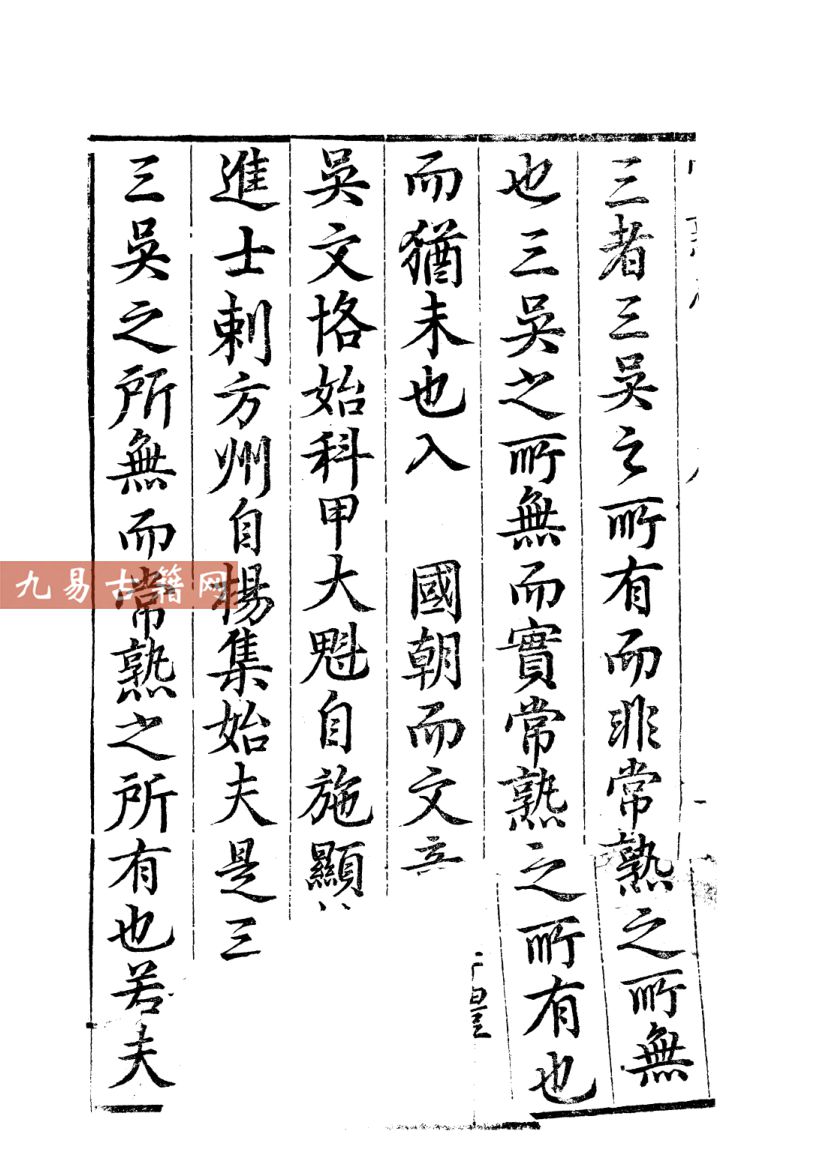 三者三吳之所有而非常熟之所無
也三吳之所無而實常熟之所有也
而猶未也入 國朝而文
吳文恪始科甲大魁自施顯
進士剌方州自楊集始夫是三
三吳之所無而常熟之所有也若夫
九易古籍网